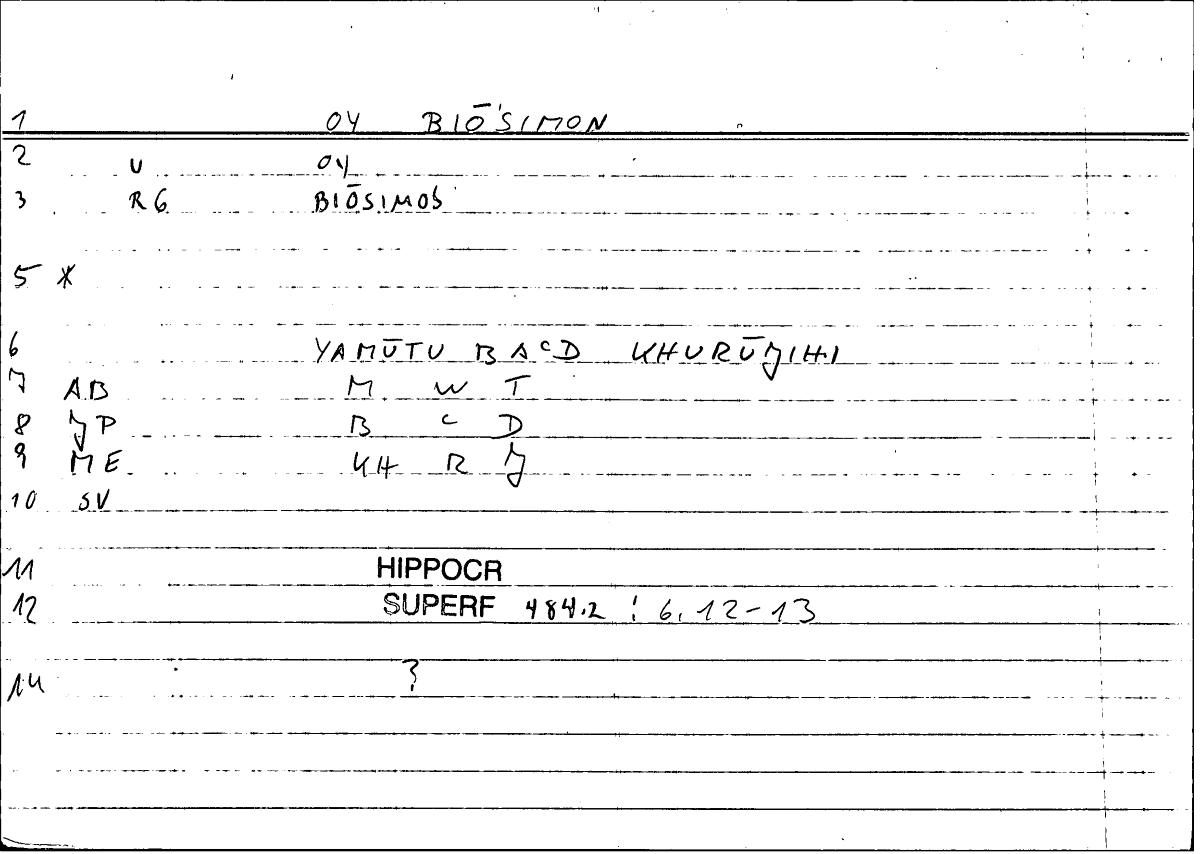 1 OY BIŌ'SIMON
2 U OY
3 RG BIŌSIMOS
5 *
6 YAMŪTU BAᶜD KHURŪJIHI
7 AB M W T
8 JP B ᶜ D
9 ME KH R J
10 SV
11 HIPPOCR
12 SUPERF 484.2 : 6.12-13
14 ?